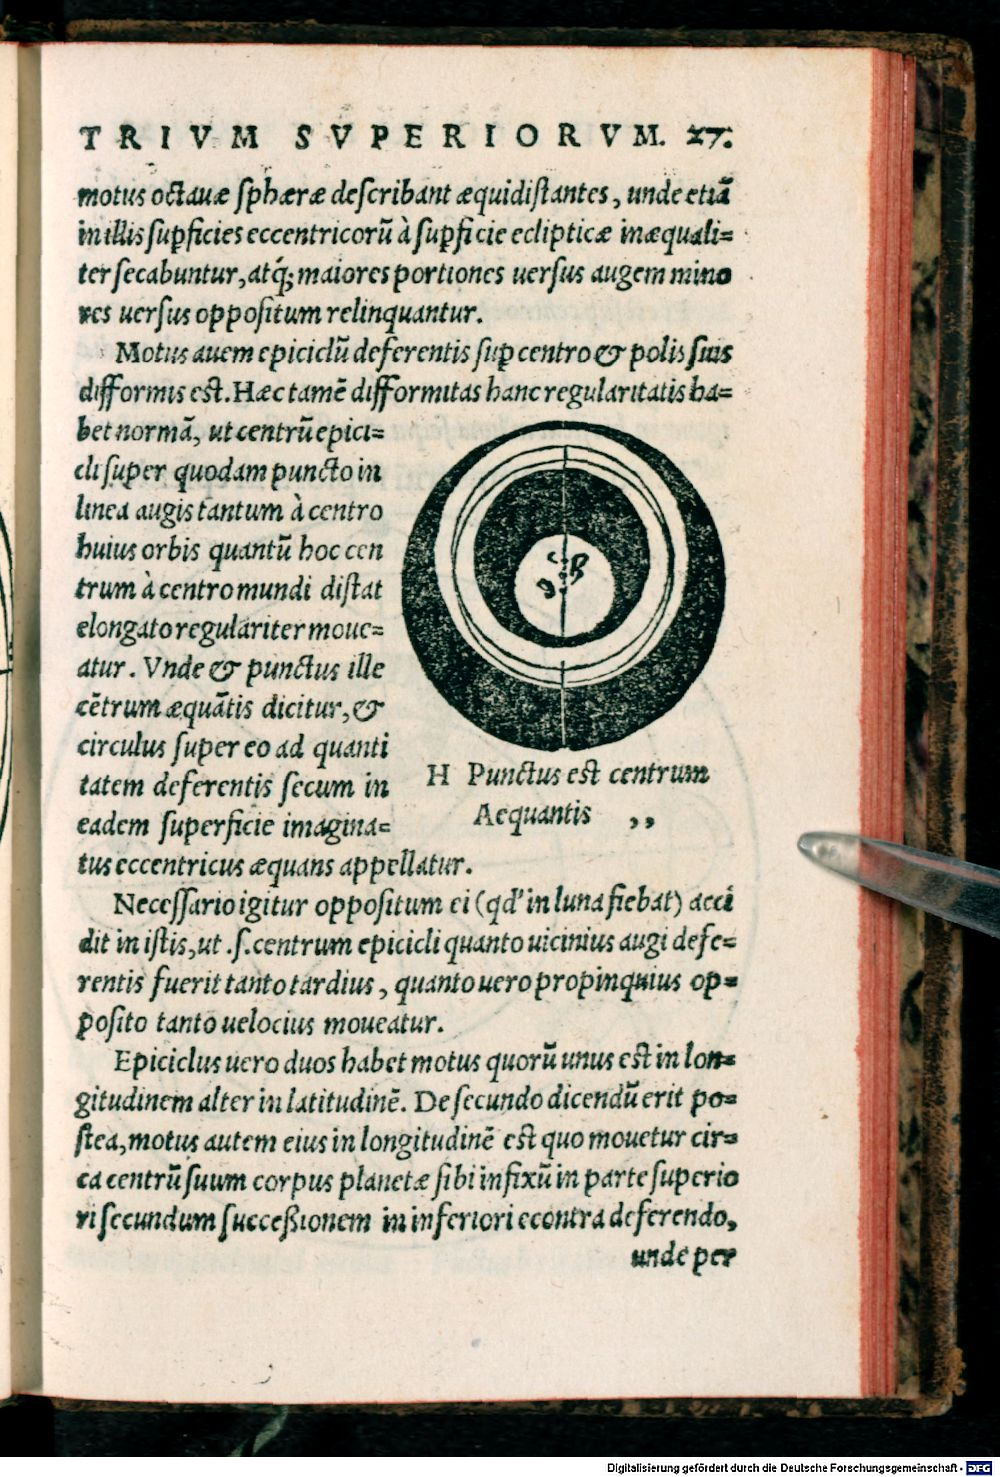 TRIVM SVPERIORVM. 27.
motus octauæ sphæræ describant æquidistantes, unde etiã
in illis supficies eccentricorũ à supficie eclipticæ inæquali=
ter secabuntur, atq́; maiores portiones uersus augem mino
res uersus oppositum relinquantur.
Motus auem epiciclũ deferentis sup centro & polis suis
difformis est. Hæc tamẽ difformitas hanc regularitatis ha=
bet normã, ut centrũ epici=
cli super quodam puncto in
linea augis tantum à centro
huius orbis quantũ hoc cen
trum à centro mundi distat
elongato regulariter moue=
atur. Vnde & punctus ille
cẽtrum æquãtis dicitur, &
circulus super eo ad quanti
tatem deferentis secum in
eadem superficie imagina=
tus eccentricus æquans appellatur.
C
B
D
H Punctus est centrum
Aequantis ,,
Necessario igitur oppositum ei (qd' in luna fiebat) acci
dit in istis, ut .s. centrum epicicli quanto uicinius augi defe=
rentis fuerit tanto tardius, quanto uero propinquius op=
posito tanto uelocius moueatur.
Epiciclus uero duos habet motus quorũ unus est in lon=
gitudinem alter in latitudinẽ. De secundo dicendũ erit po=
stea, motus autem eius in longitudinẽ est quo mouetur cir=
ca centrũ suum corpus planetæ sibi infixũ in parte superio
ri secundum successionem in inferiori econtra deferendo,
unde per
Digitalisierung gefördert durch die Deutsche Forschungsgemeinschaft - DFG